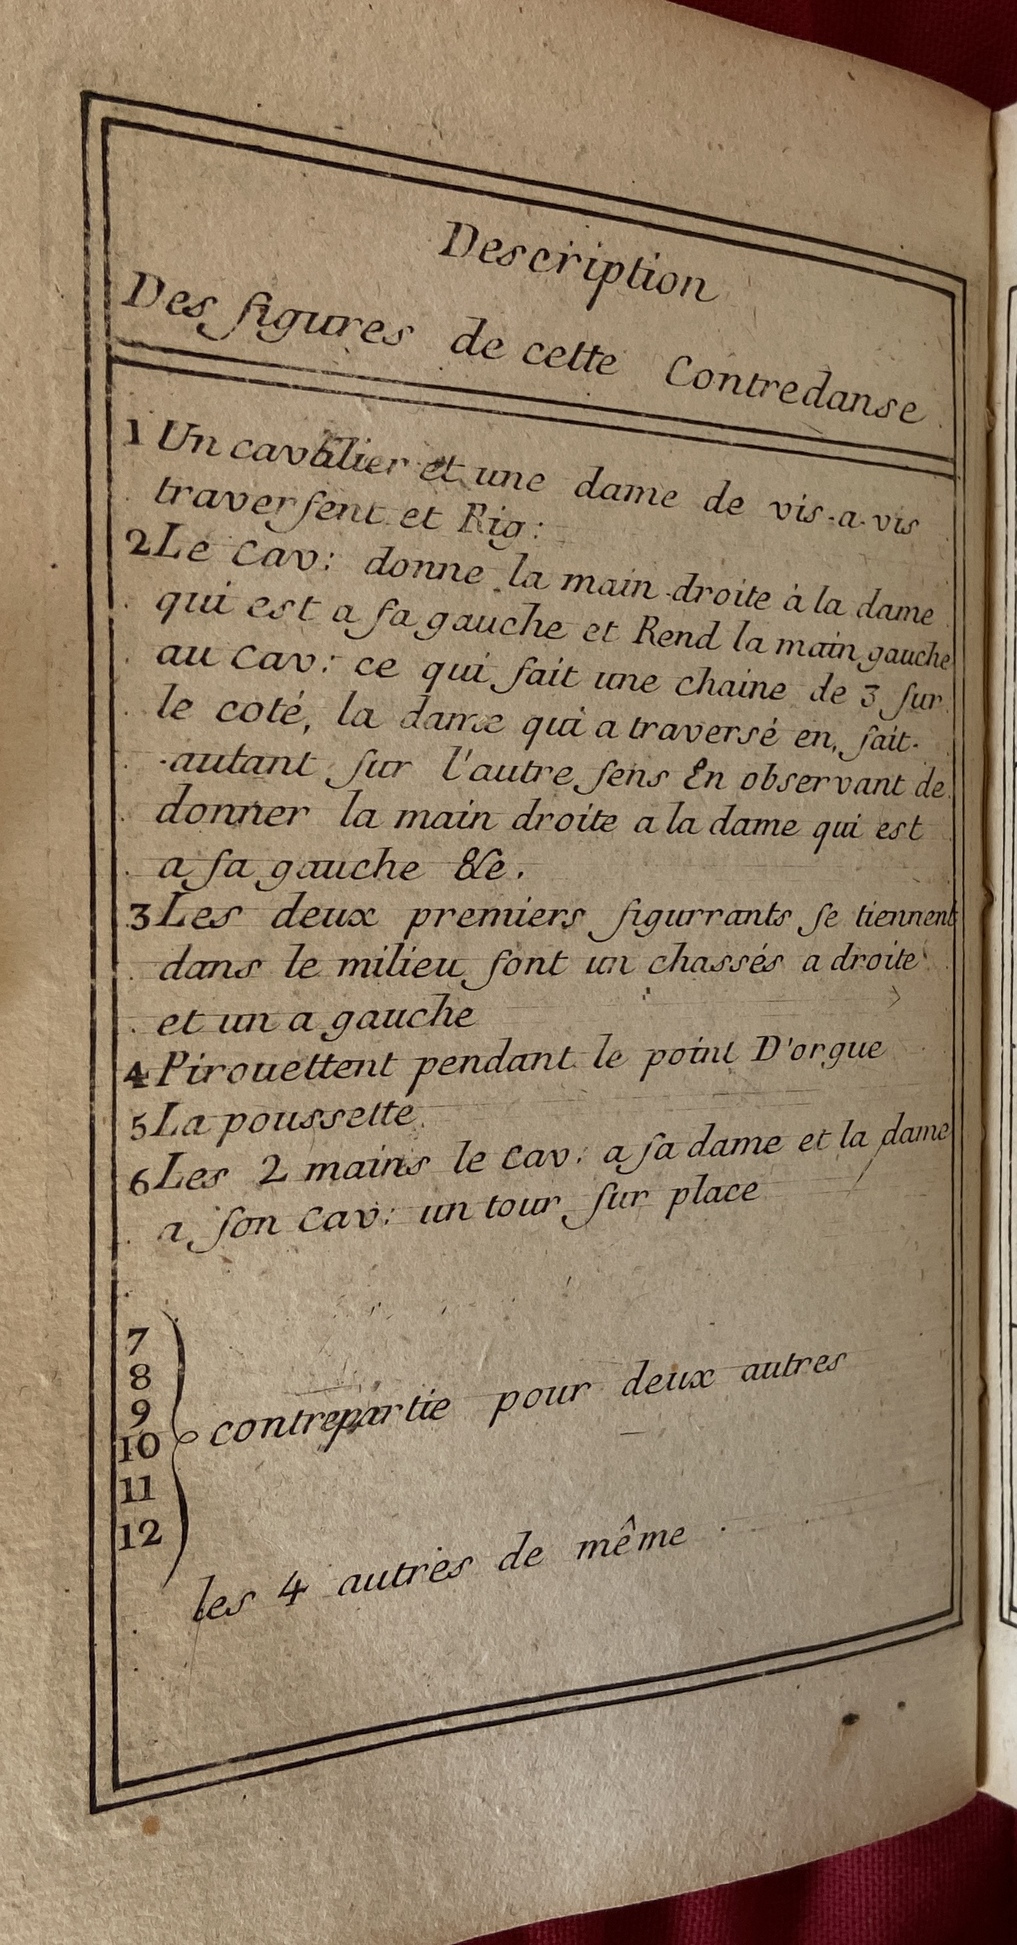 Description
Des figures de cette Contredanse
1 Un cavalier et une dame de vis-a-vis
traversent et Rig:
2 Le Cav: donne la main droite à la dame
qui est a sa gauche et Rend la main gauche
au Cav: ce qui fait une chaine de 3 sur
le coté, la dame qui a traversé en fait
autant sur l'autre sens En observant de
donner la main droite a la dame qui est
a sa gauche &c.
3 Les deux premiers figurrants se tiennent
dans le milieu font un chassés a droite
et un a gauche
4 Pirouettent pendant le point D'orgue
5 La poussette
6 Les 2 mains le Cav: a sa dame et la dame
a son Cav: un tour sur place
7
8
9
10 contrepartie pour deux autres
11
12
les 4 autres de même